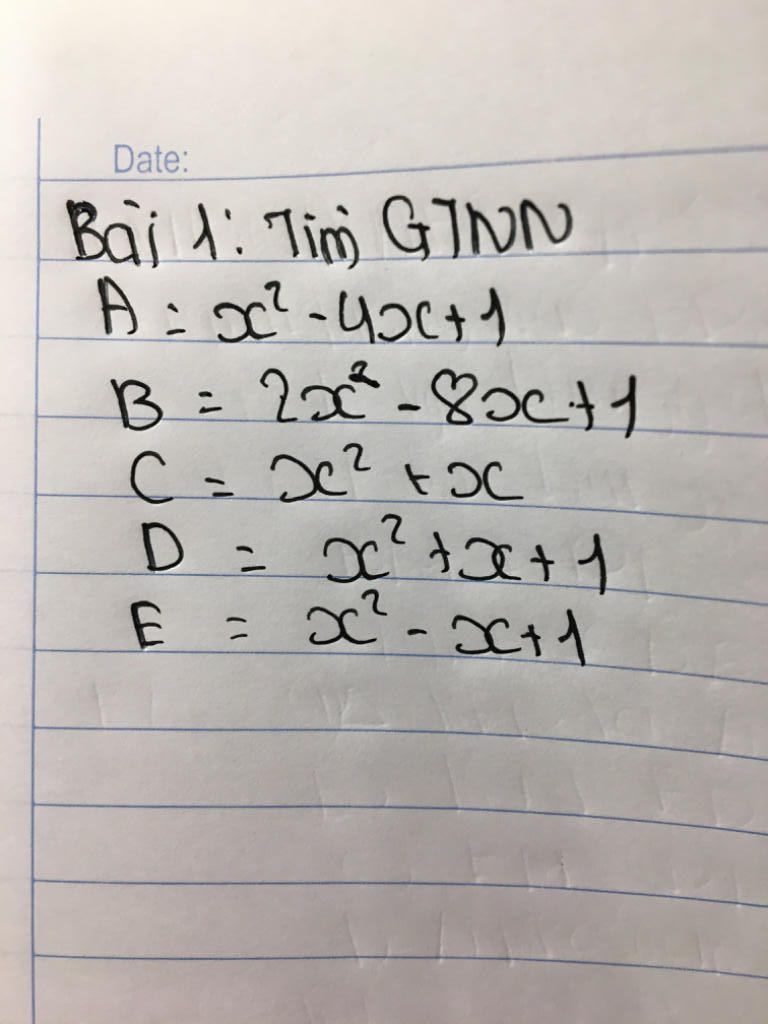 Date:
Bài 1: Tìm GTNN
A = x² - 4x + 1
B = 2x² - 8x + 1
C = x² + x
D = x² + x + 1
E = x² - x + 1